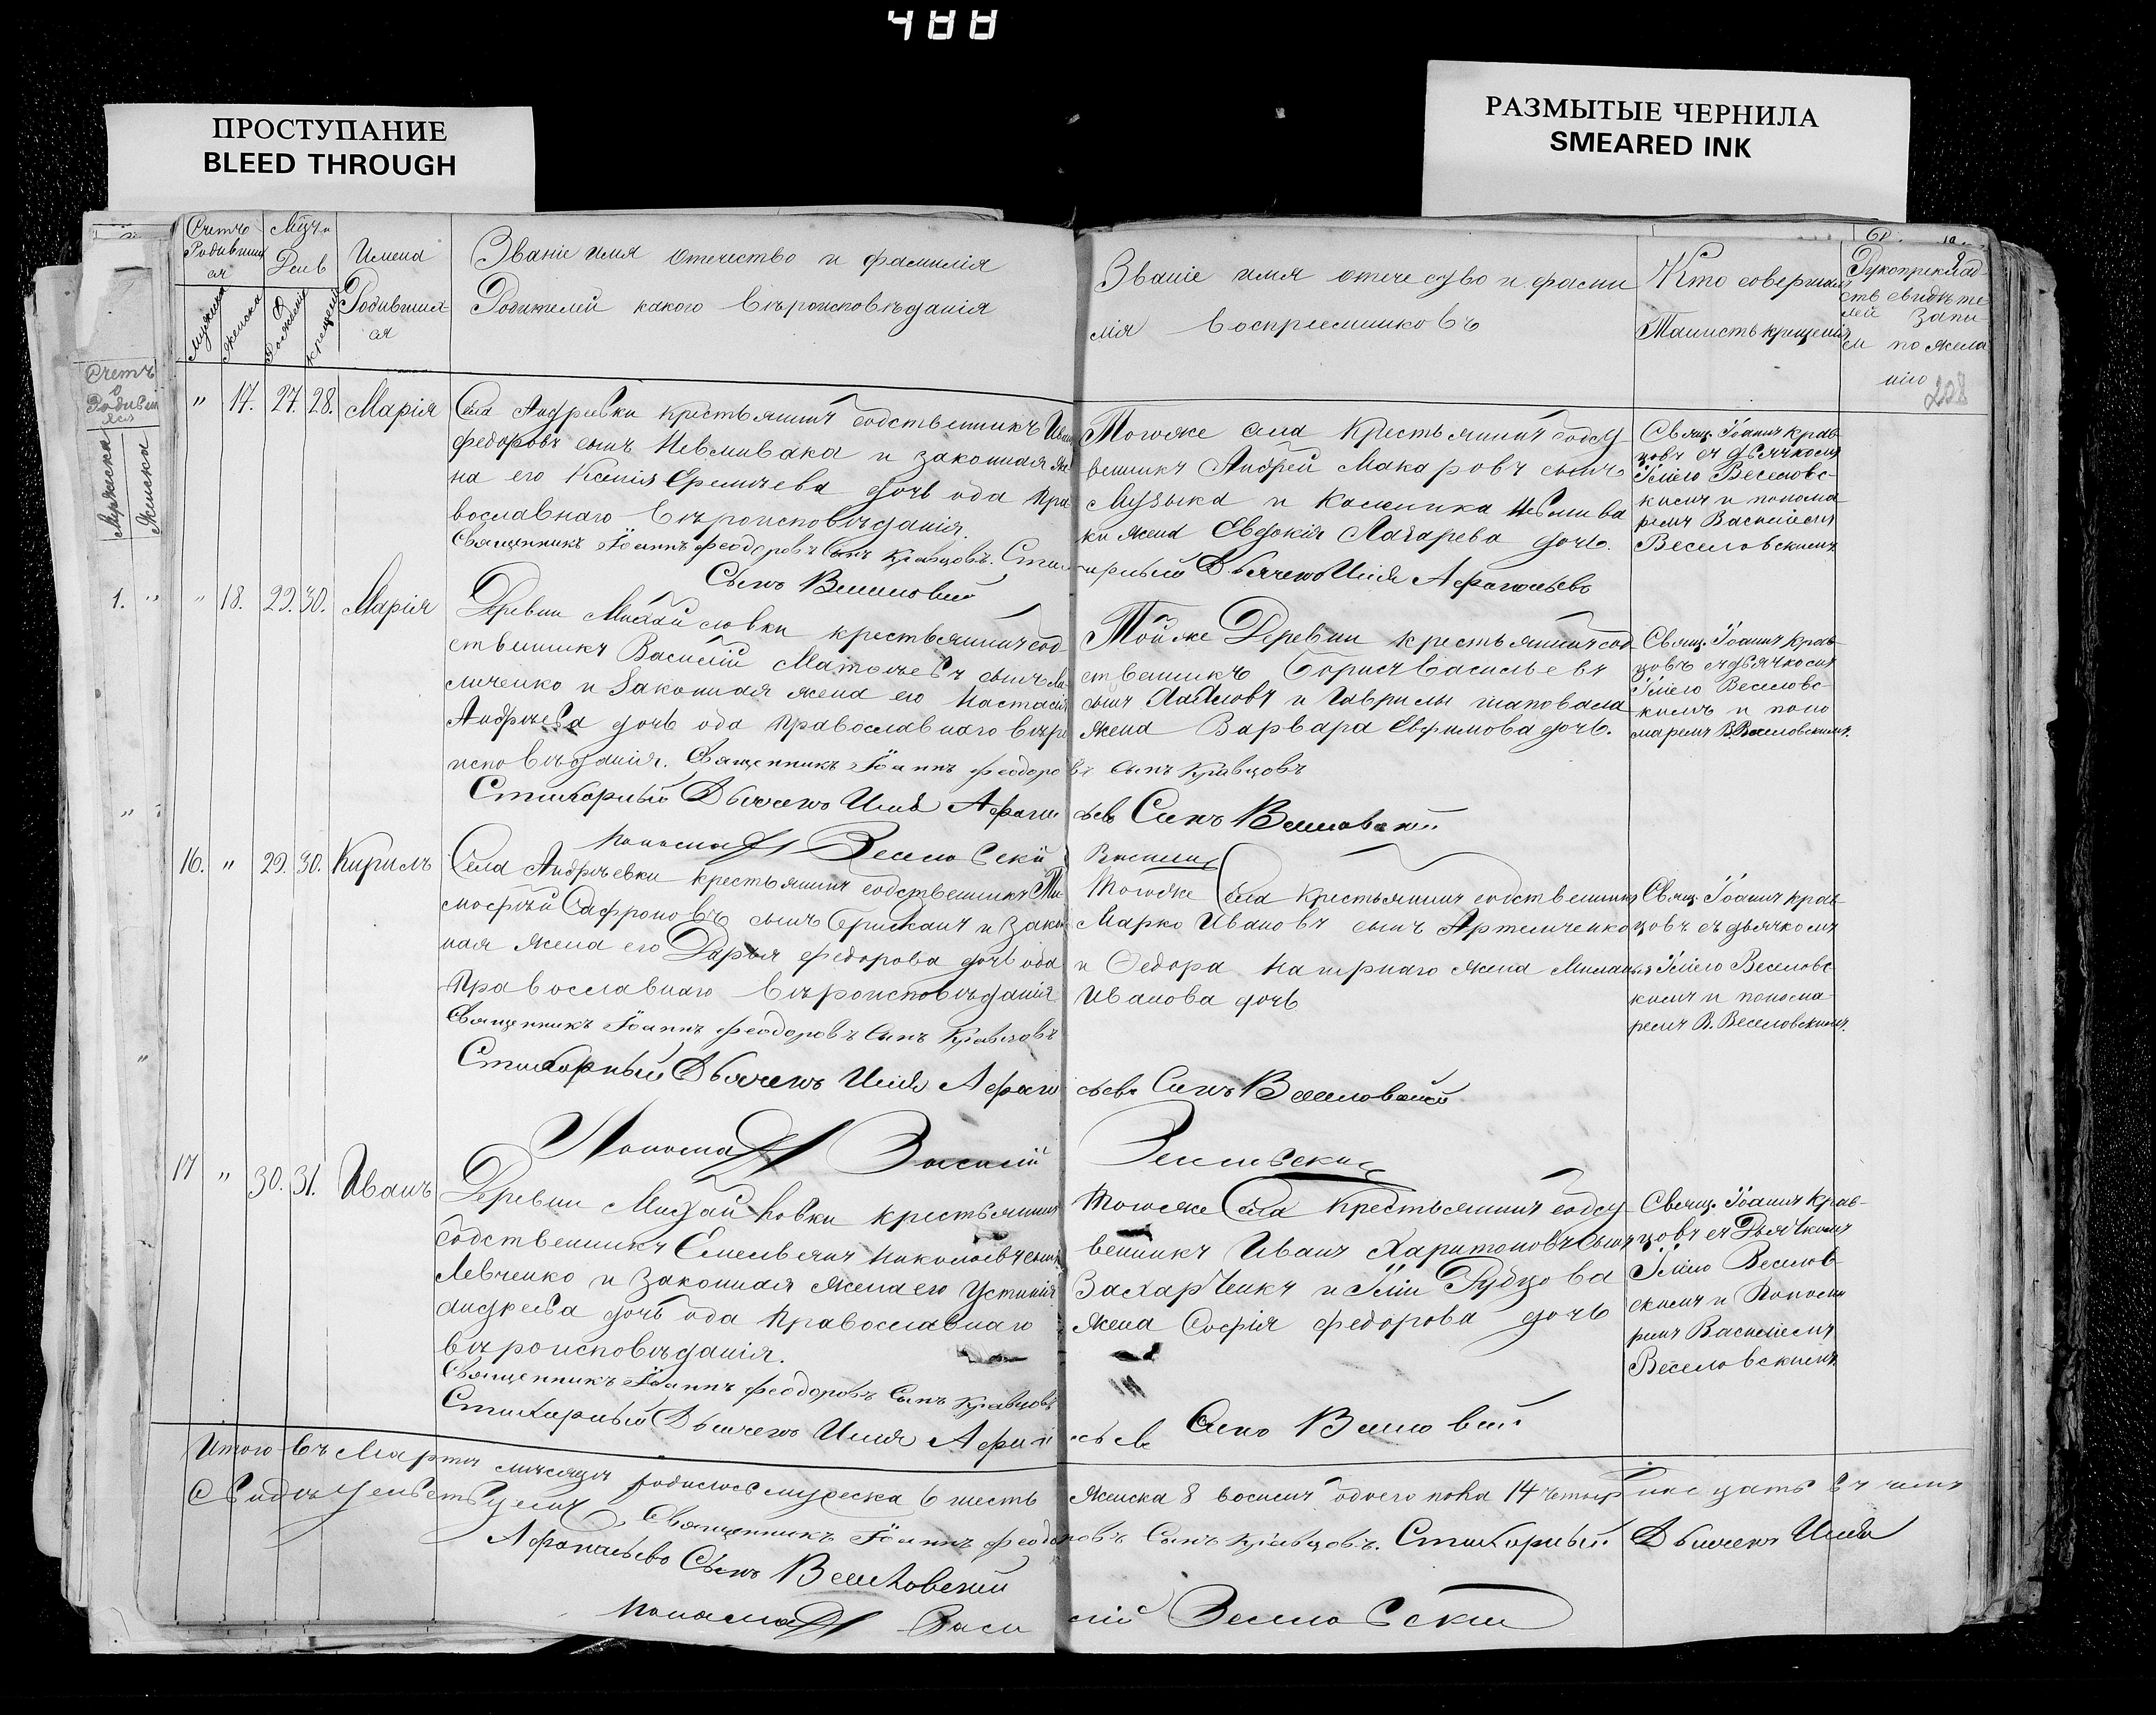 488
ПРОСТУПАНИЕ
BLEED THROUGH
РАЗМЫТЫЕ ЧЕРНИЛА
SMEARED INK
Счетъ Родившихся
Мужеска
Женска
Мѣсяцъ и День
Рожденія
Крещенія
Имена
Родившихся
Званіе имя отечество и фамилія
Родителей какого вѣроисповѣданія
Званіе имя отечество и фами
лія воспреемниковъ
Кто совершалъ
Таинство крещенія
Рукоприклад
ство свидѣте
лей запи
си по жела
нію
208
" 17. 27. 28. Марія
Села Андревки крестьянинъ собственникъ Иванъ
Федоровъ сынъ Невмивака и законная же
на его Ксенія Еремичева дочь оба пра
вославнаго вѣроисповѣданія.
Священникъ Іоаннъ Феодоровъ Сынъ Кравцовъ. Стихарный Дьячекъ Илія Афанасьевъ
Сынъ Веселовскій
Тогоже села крестьянинъ собст
венникъ Андрей Макаровъ сынъ
Музыка и Калиника Невмива
ки жена Евдокія Лазарева дочь.
Свящ. Іоаннъ Крав
цовъ съ дьячкомъ
Иліею Веселовс-
кимъ и понома
ремъ Василіемъ
Веселовскимъ
" 18. 29. 30. Марія
Деревни Михайловки крестьянинъ соб
ственникъ Василій
и законная жена его Настасія
Андрѣева дочь оба православнаго вѣро
исповѣданія. Священникъ Іоаннъ Феодоровъ сынъ Кравцовъ
Стихарный Дьячекъ Илія Афанасьевъ Сынъ Веселовскій
Пономарь Веселовскій Василій
Тойже Деревни крестьянинъ соб
ственникъ Борисъ Васильевъ
сынъ и Гаврилы Шаповала
жена Варвара Евфимова дочь.
Свящ. Іоаннъ Крав
цовъ съ дьячкомъ
Иліею Веселовс-
кимъ и поно
маремъ В. Веселовскимъ.
16. " 29. 30. Кирилъ
Села Андрѣевки крестьянинъ собственникъ Ти
мофѣй Сафроновъ сынъ и закон
ная жена его Дарья Федорова дочь оба
Православнаго вѣроисповѣданія
Священникъ Іоаннъ Феодоровъ Сынъ Кравцовъ
Стихарный Дьячекъ Илія Афанасьевъ Сынъ Веселовскій
Пономарь Василій Веселовскій
Тогоже Села крестьянинъ собственникъ
Марко Ивановъ сынъ Артемченко
и Федора Нагирнаго жена Миланья
Иванова дочь
Свящ. Іоаннъ Крав
цовъ съ дьячкомъ
Иліею Веселовс
кимъ и понома-
ремъ В. Веселовскимъ.
17 " 30. 31. Иванъ
Деревни Михайловки крестьянинъ
собственникъ Емельянъ Николаевъ сынъ
Левченко и законная жена его Устинія
Андреева дочь оба Православнаго
вѣроисповѣданія.
Священникъ Іоаннъ Феодоровъ Сынъ Кравцовъ
Стихарный Дьячекъ Илія Афанасьевъ Сынъ Веселовскій
Тогоже Села крестьянинъ собст
венникъ Иванъ Харитоновъ сынъ
Захарченко и Иліи Рубцова
жена Софія Федорова дочь
Свящ. Іоаннъ Крав-
цовъ съ Дьячкомъ
Иліею Веселов-
скимъ и Понома
ремъ Василіемъ
Веселовскимъ
Итого въ Мартѣ мѣсяцѣ родилось мужеска 6 шесть женска 8 восемь обоего пола 14 четырнадцать въ чемъ
Свидѣтельствуемъ Священникъ Іоаннъ Феодоровъ Сынъ Кравцовъ. Стихарный Дьячекъ Илія
Афанасьевъ Сынъ Веселовскій
Пономарь Василій Веселовскій